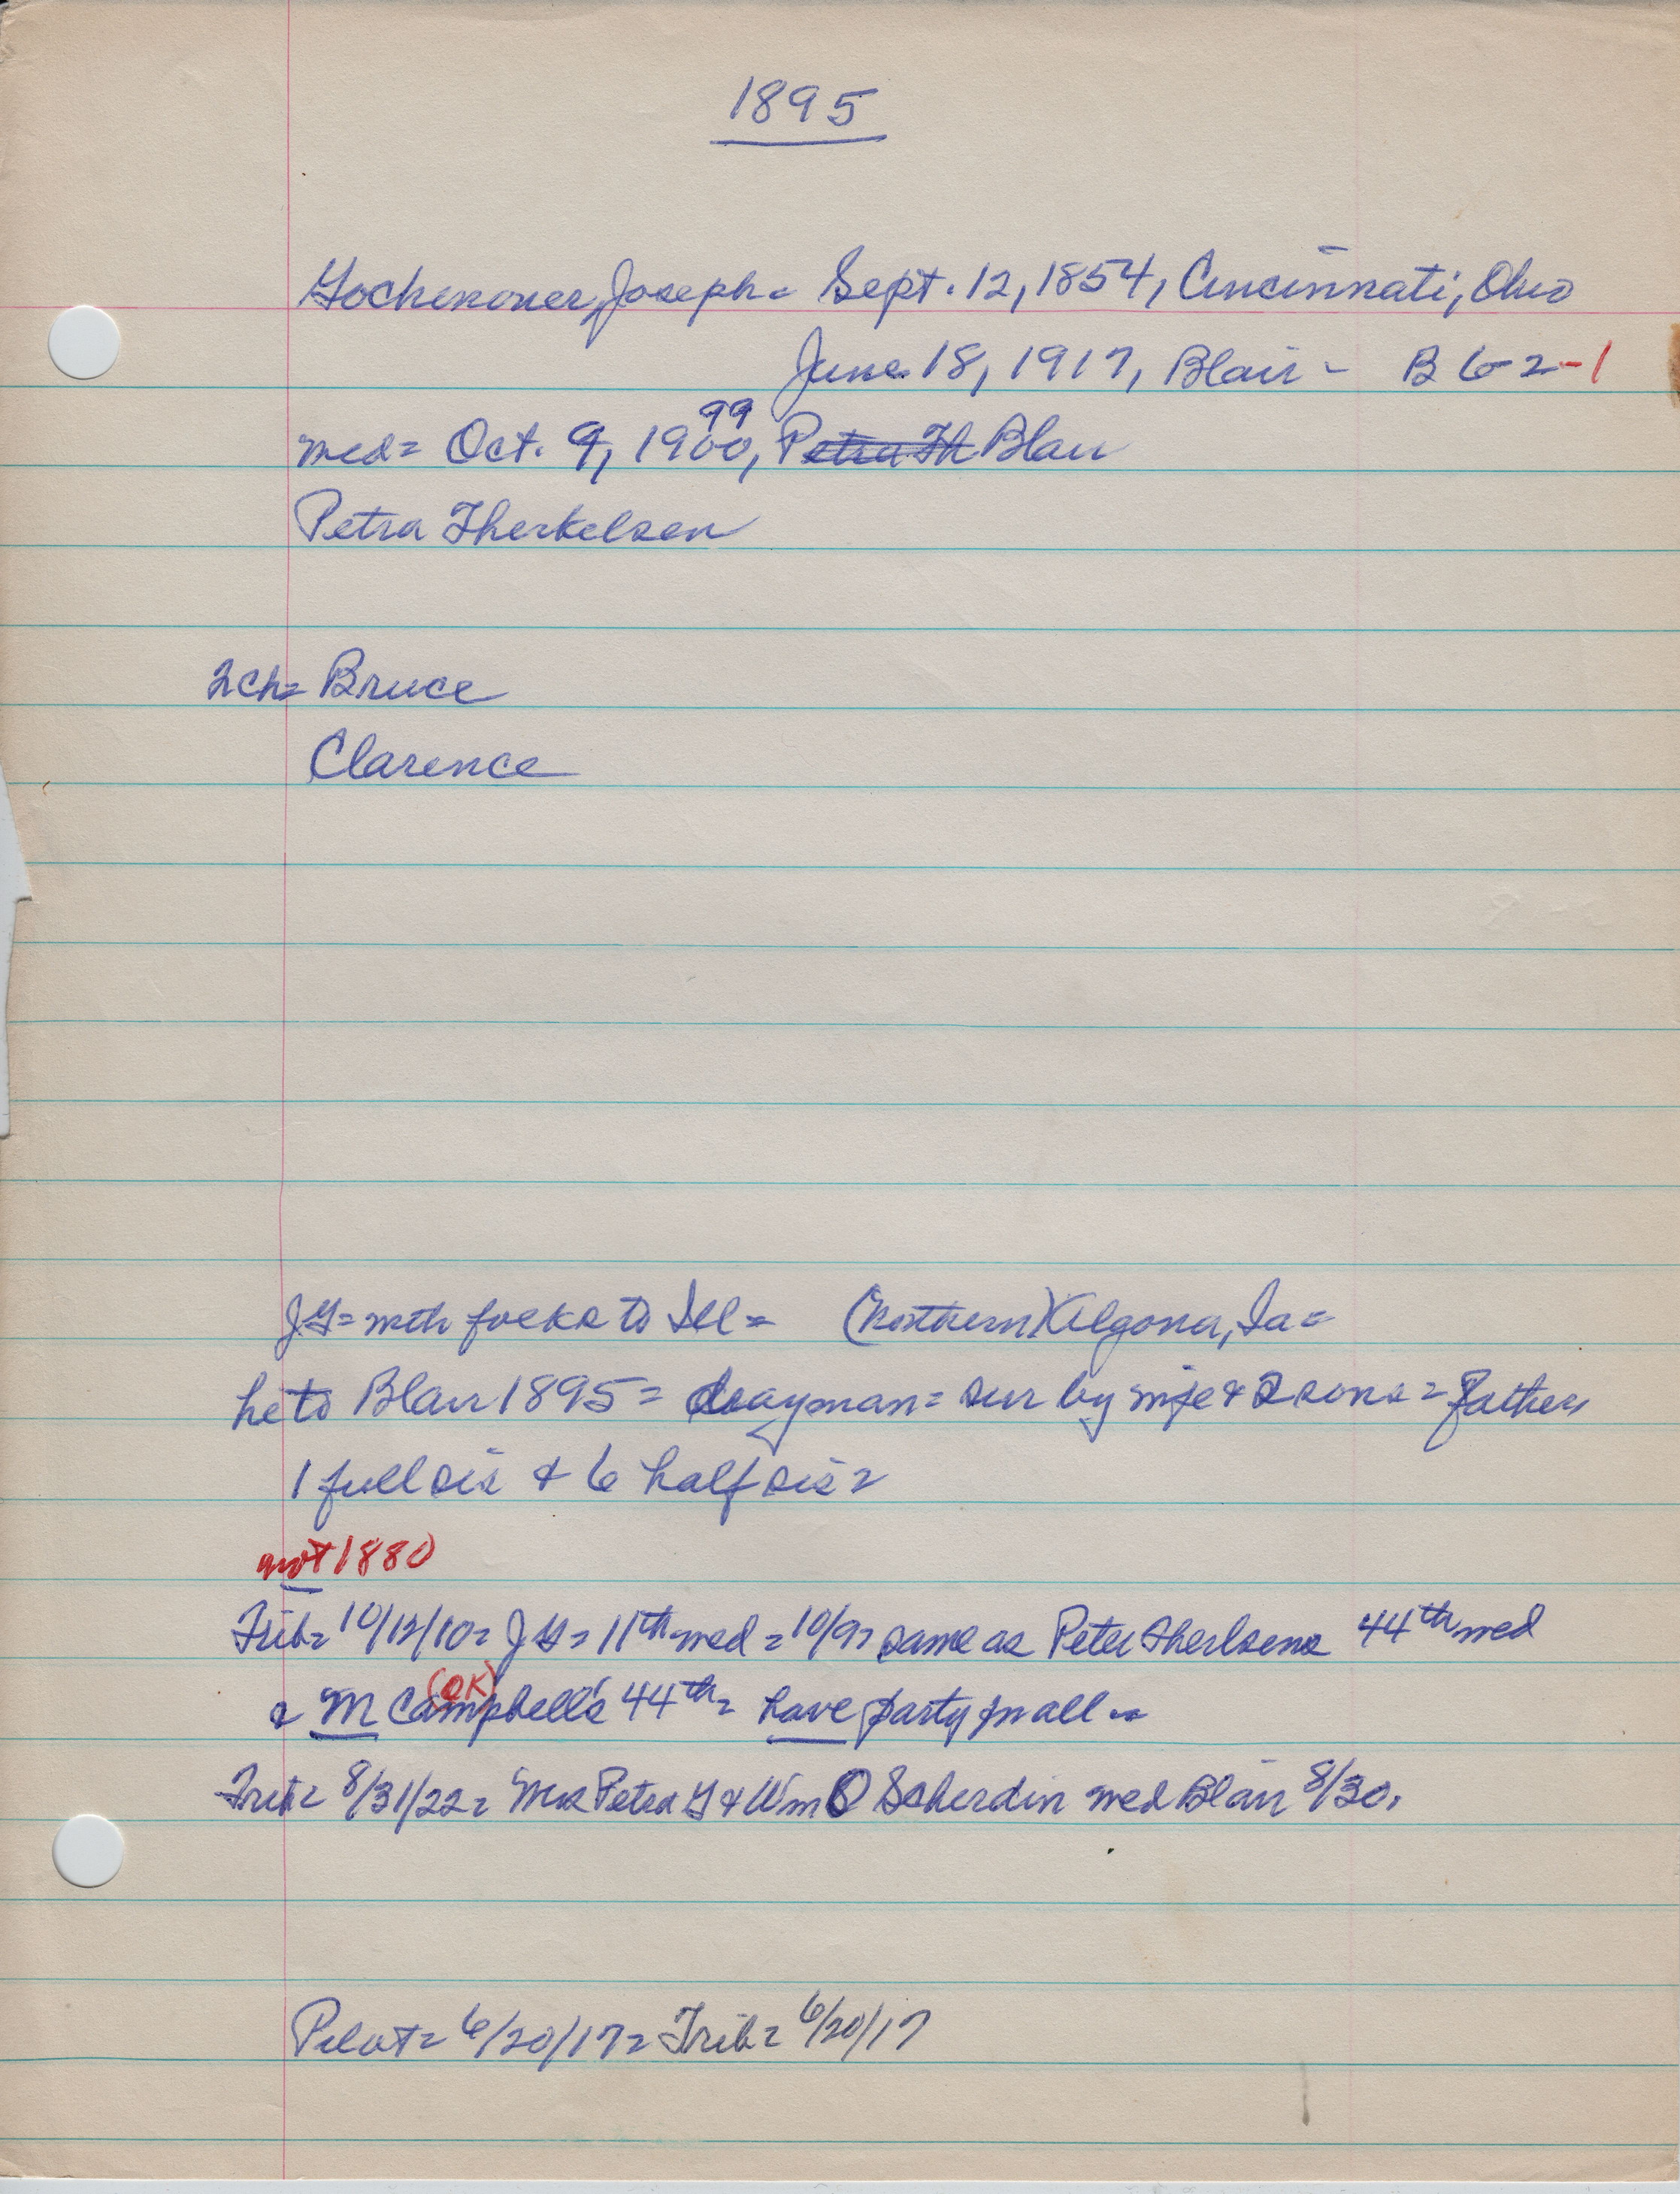 1895
Gochenouer, Joseph = Sept. 12, 1854, Cincinnati, Ohio
June 18, 1917, Blair - B 6-2-1
99
med = Oct. 9, 1900, Petra Th Blair
Petra Therkelsen
2 ch = Bruce
Clarence
JG = with folks to Ill = (Northern) Algona, Ia =
he to Blair 1895 = drayman = sur by wife & 2 sons = father
1 full sis & 6 half sis =
not 1880
Trib = 10/12/10 = JG = 11th wed = 10/9 = same as Peter 44th wed
(OK)
& M Campbell's 44th = have party for all =
Trib = 8/31/22 = Mrs Petra G & Wm O Scherdin wed Blair 8/30.
Pilot = 6/20/17 = Trib = 6/20/17